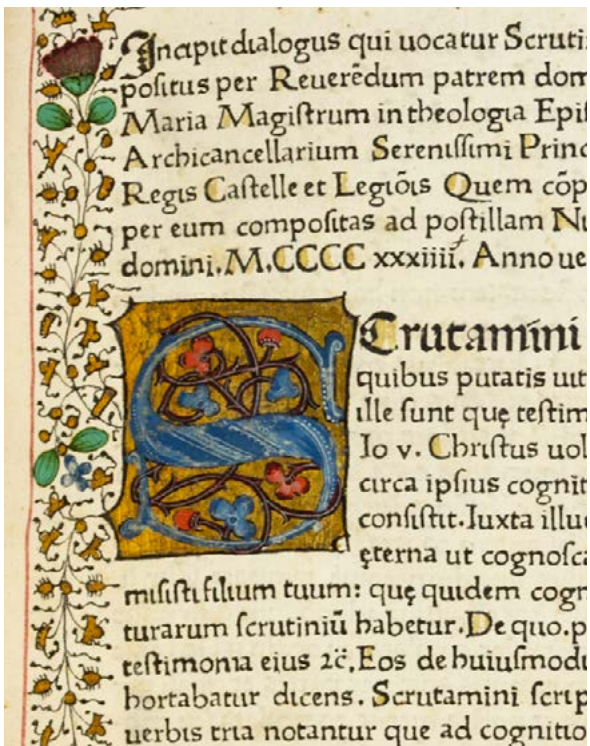 Incipit dialogus qui uocatur Scruti
positus per Reuerēdum patrem dom
Maria Magiſtrum in theologia Epiſ
Archicancellarium Sereniſſimi Princ
Regis Caſtelle et Legiōis Quem cōp
per eum compoſitas ad poſtillam Ni
domini.M.CCCC xxxiiii. Anno ue
SCrutamini
quibus putatis uit
ille ſunt quę teſtim
Io v. Chriſtus uol
circa ipſius cognit
conſiſtit.Iuxta illud
ęterna ut cognoſca
miſiſti filium tuum: quę quidem cogn
turarum ſcrutiniū habetur.De quo.p
teſtimonia eius ⁊c̄.Eos de huiuſmodi
hortabatur dicens. Scrutamini ſcrip
uerbis tria notantur que ad cognitio